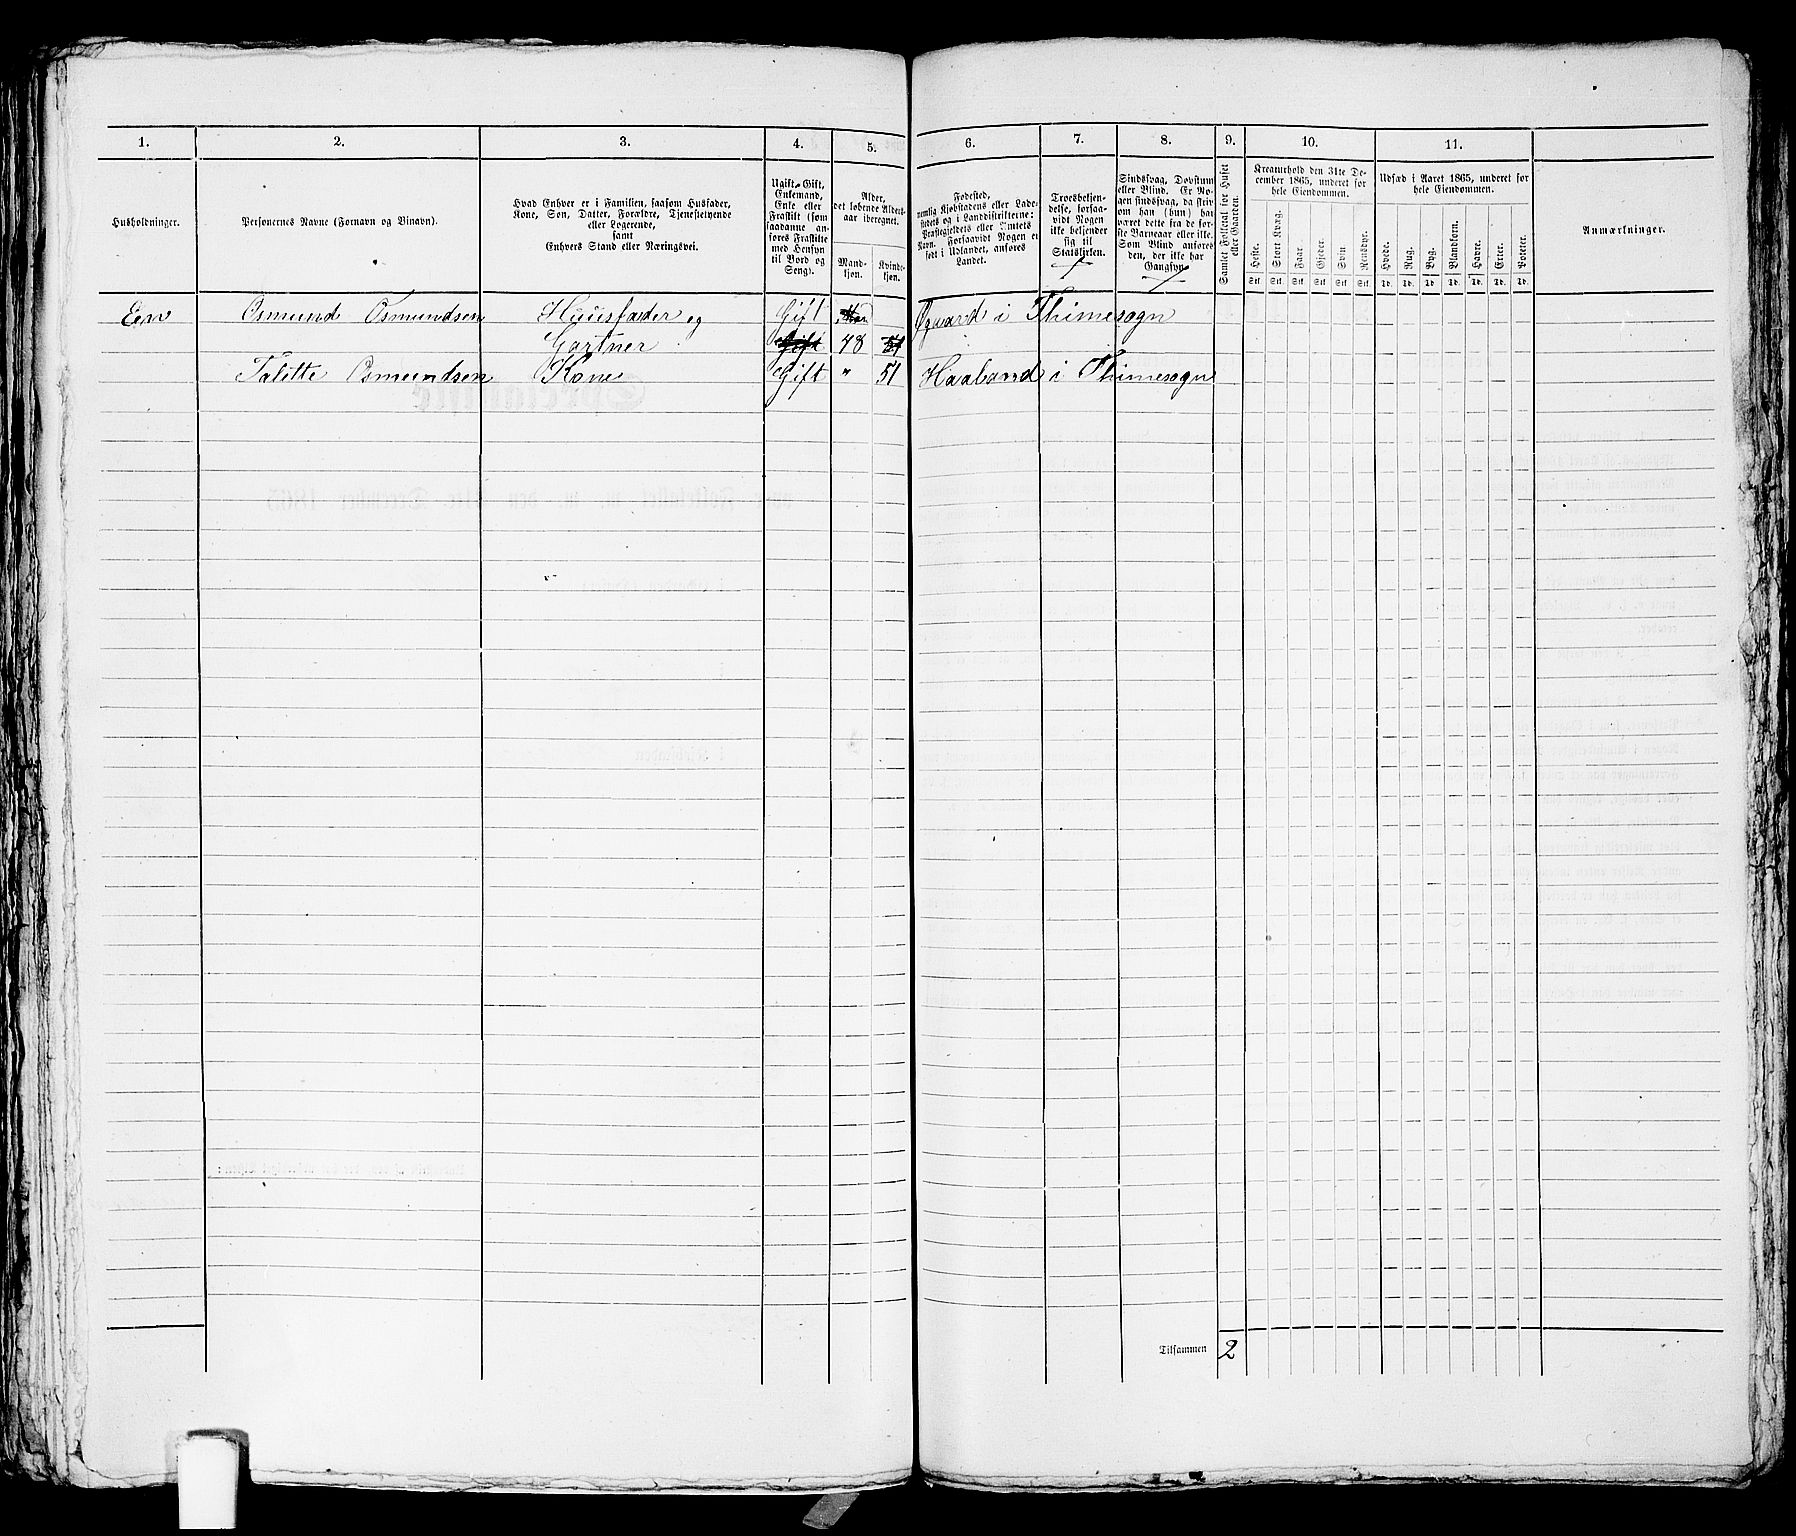 1.
2.
3.
4.
5.
6.
7.
8.
9.
10.
11.
Husholdninger.
Personernes Navne (Fornavn og Binavn).
Hvad Enhver er i Familien, saasom Husfader,
Kone, Søn, Datter, Forældre, Tjenestetyende
eller Logerende,
samt
Enhvers Stand eller Næringsvei.
Ugift, Gift,
Enkemand,
Enke eller
Fraskilt (som
saadanne an-
føres Fraskilte
med Hensyn
til Bord og
Seng).
Alder,
det løbende Alders-
aar iberegnet.
Mand-
kjøn.
Kvinde-
kjøn.
Fødested,
nemlig Kjøbstadens eller Lade-
stedets og i Landdistrikterne:
Præstegjeldets eller Amtets
Navn. Forsaavidt Nogen er
født i Udlandet, anføres
Landet.
Troesbekjen-
delse, forsaa-
vidt Nogen
ikke bekjender
sig til
Statskirken.
Sindssvag, Døvstum
eller Blind. Er No-
gen sindssvag, da skriv
om han (hun) har
været dette fra de før-
ste Barneaar eller ikke.
Som Blind anføres
den, der ikke har
Gangsyn.
Samlet Folketal for Huset
eller Gaarden.
Kreaturhold den 31te De-
cember 1865, underet for
hele Eiendommen.
Heste.
Stort Kvæg.
Faar.
Gjeder.
Svin
Rensdyr.
Stk. Stk. Stk. Stk. Stk. Stk.
Udsæd i Aaret 1865, underet for
hele Eiendommen.
Hvede.
Rug.
Byg.
Blandkorn.
Havre.
Erter.
Poteter.
Td. Td. Td. Td. Td. Td. Td.
Anmærkninger.
Een Osmund Osmundsen Huusfader og Gift Øgaard i Thimesogn
Gartner Gift 48 51
Talette Osmundsen Kone Gift " 51 Haaland i Thimesogn
Tilsammen 2